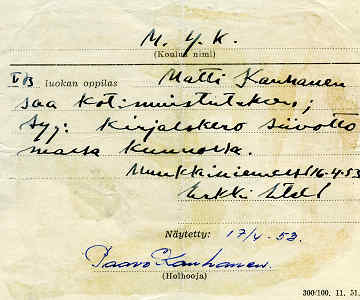 M. Y. K.
(Koulun nimi)
VB luokan oppilas Matti Kanhanen
saa kotimuistutuksen;
Syy: Kirjalokero siivotto
massa kunnossa.
Munkkiniemessä 16.4.53
Erkki
Näytetty: 17/4 - 53.
Paavo Kanhanen.
(Holhooja)
300/100. 11. 51.